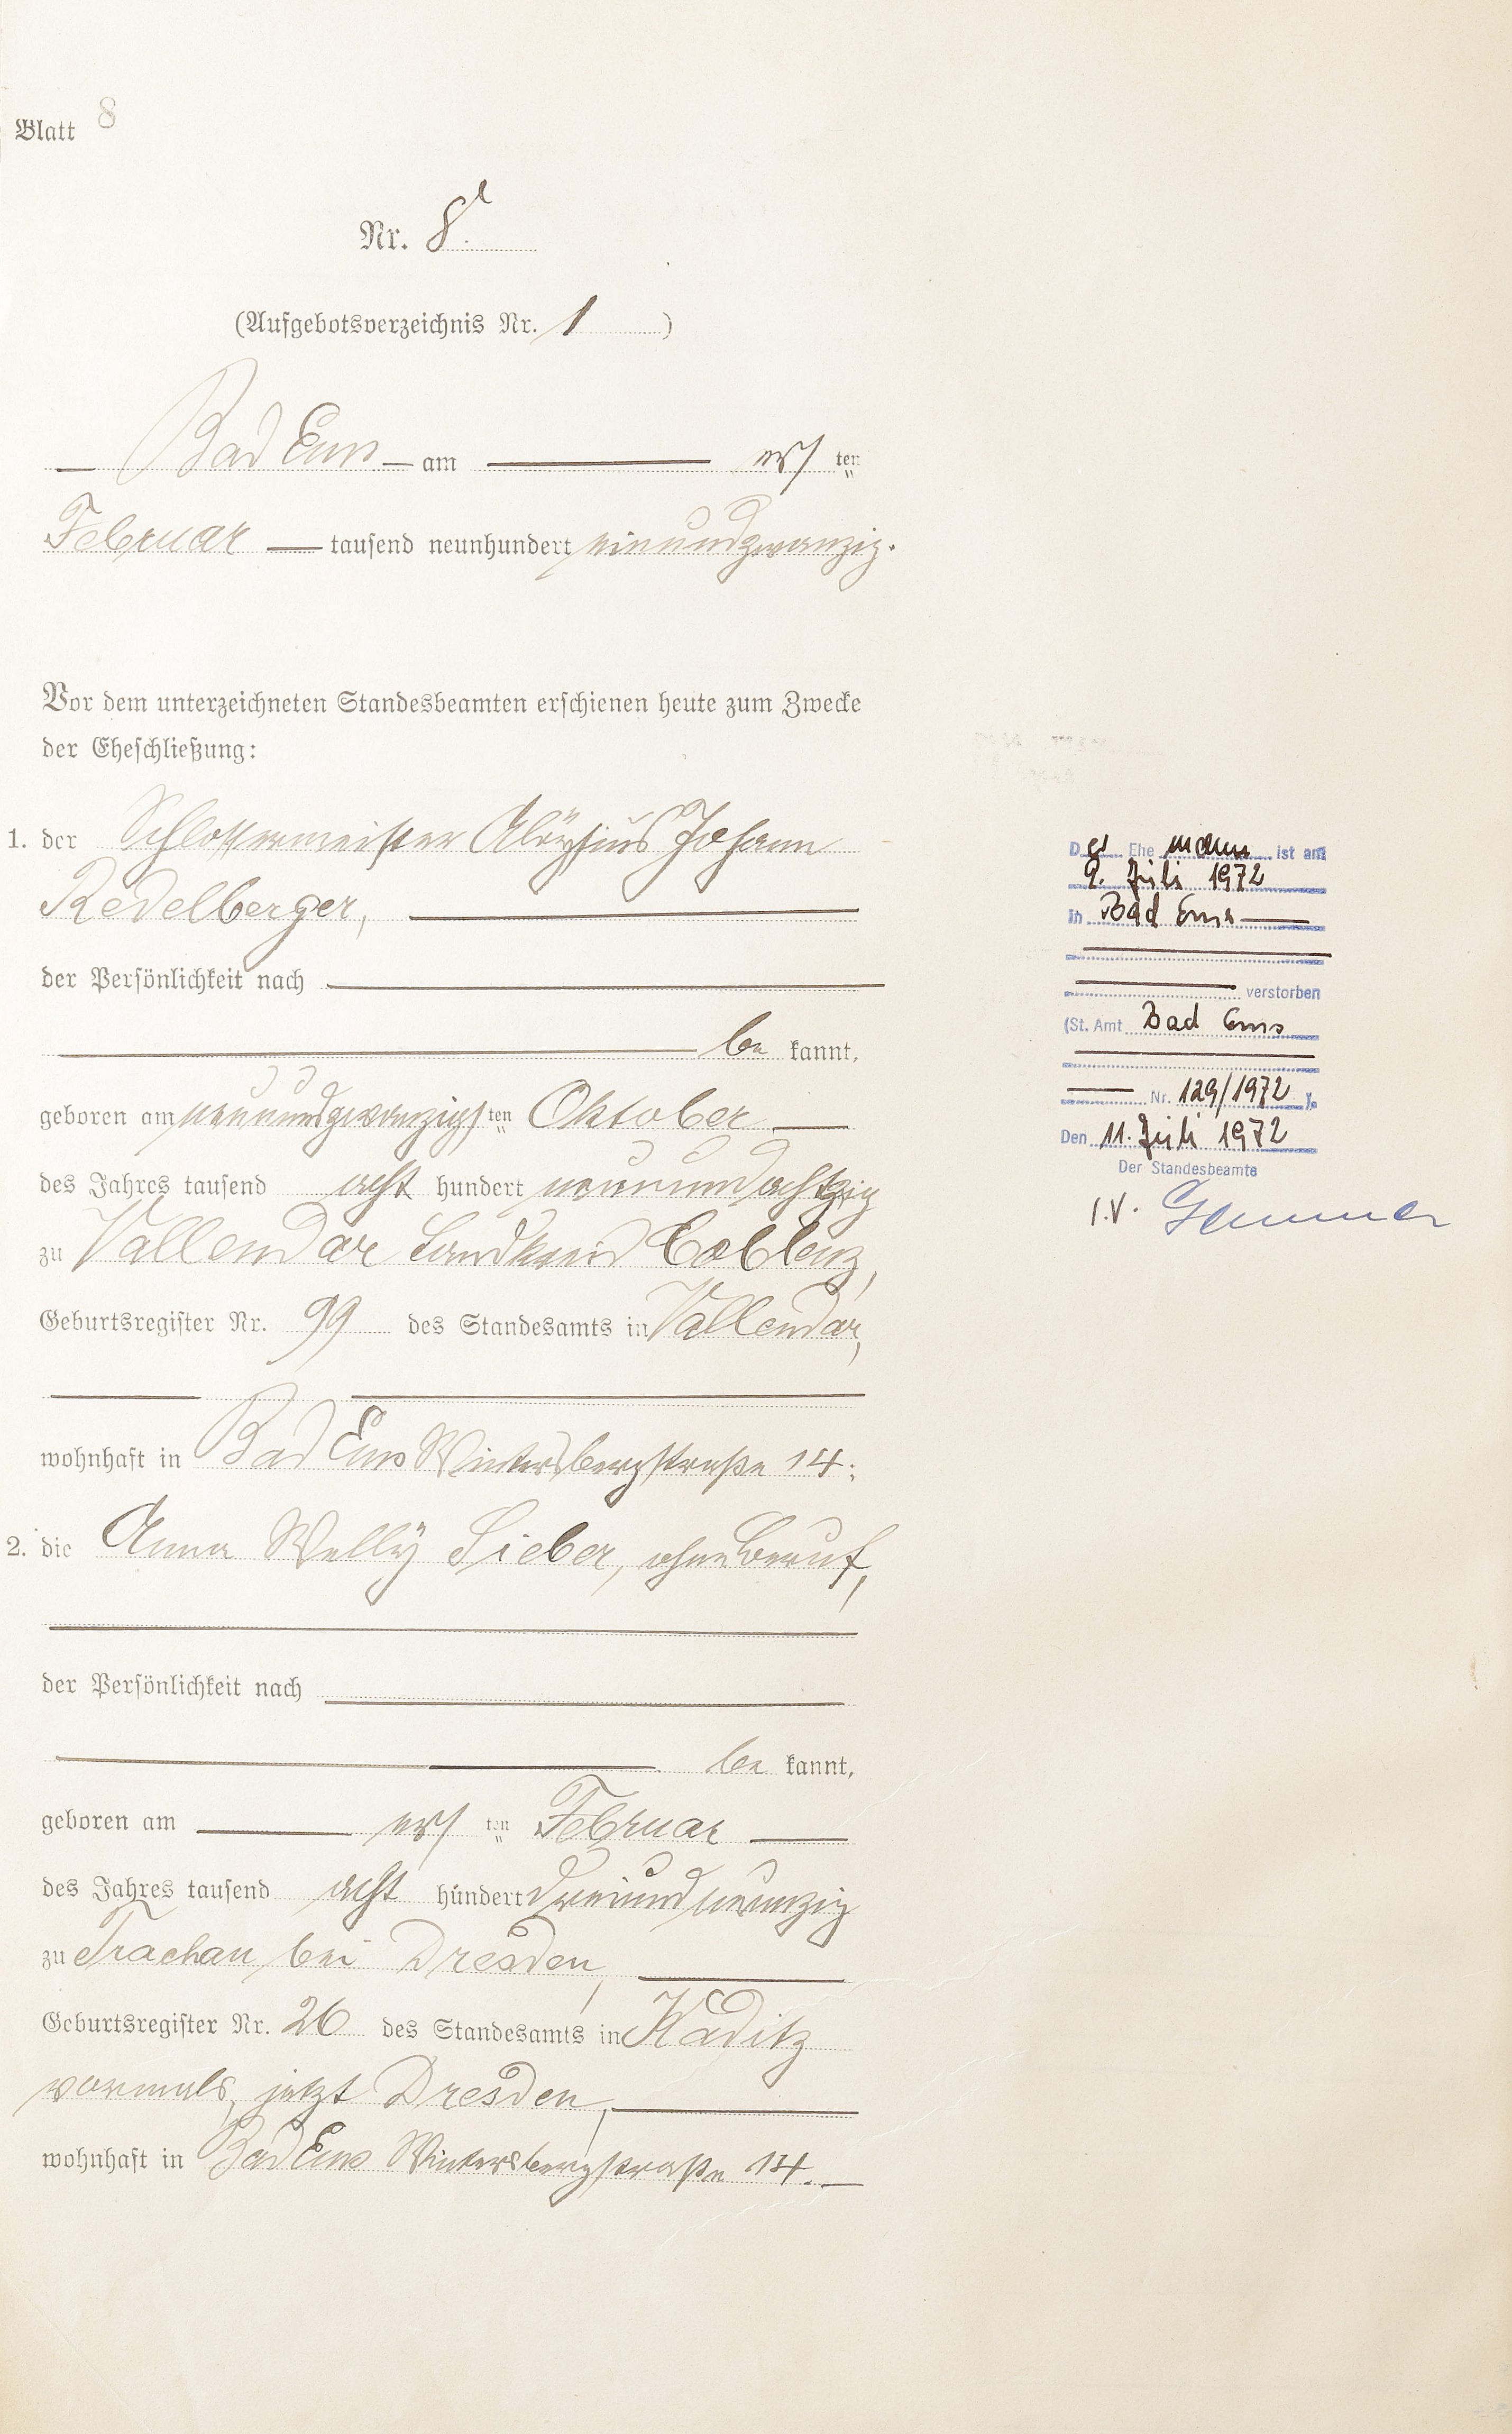 Blatt 8
Nr. 8.
(Aufgebotsverzeichnis Nr. 1 )
Bad Ems am ers ten
Februar tausend neunhundert einundzwanzig.
Vor dem unterzeichneten Standesbeamten erschienen heute zum Zwecke
der Eheschließung:
1. der Schlossermeister Aloÿsius Johann
Redelberger,
der Persönlichkeit nach
be kannt,
geboren am neunundzwanzigs ten Oktober
des Jahres tausend acht hundert neunundachtzig
zu Vallendar Landkreis Coblenz,
Geburtsregister Nr. 99 des Standesamts in Vallendar,
wohnhaft in Bad Ems Wintersbergstraße 14;
2. die Anna Welly Sieber, ohne Beruf,
der Persönlichkeit nach
be kannt,
geboren am ers ten Februar
des Jahres tausend acht hundert dreiundneunzig
zu Trachau bei Dresden,
Geburtsregister Nr. 26 des Standesamts in Kaditz
vormals, jetzt Dresden,
wohnhaft in Bad Ems Wintersbergstraße 14.
D er Ehe mann ist am
9. Juli 1972
in Bad Ems
verstorben
(St. Amt Bad Ems
Nr. 129/1972 ).
Den 11. Juli 1972
Der Standesbeamte
I.V.